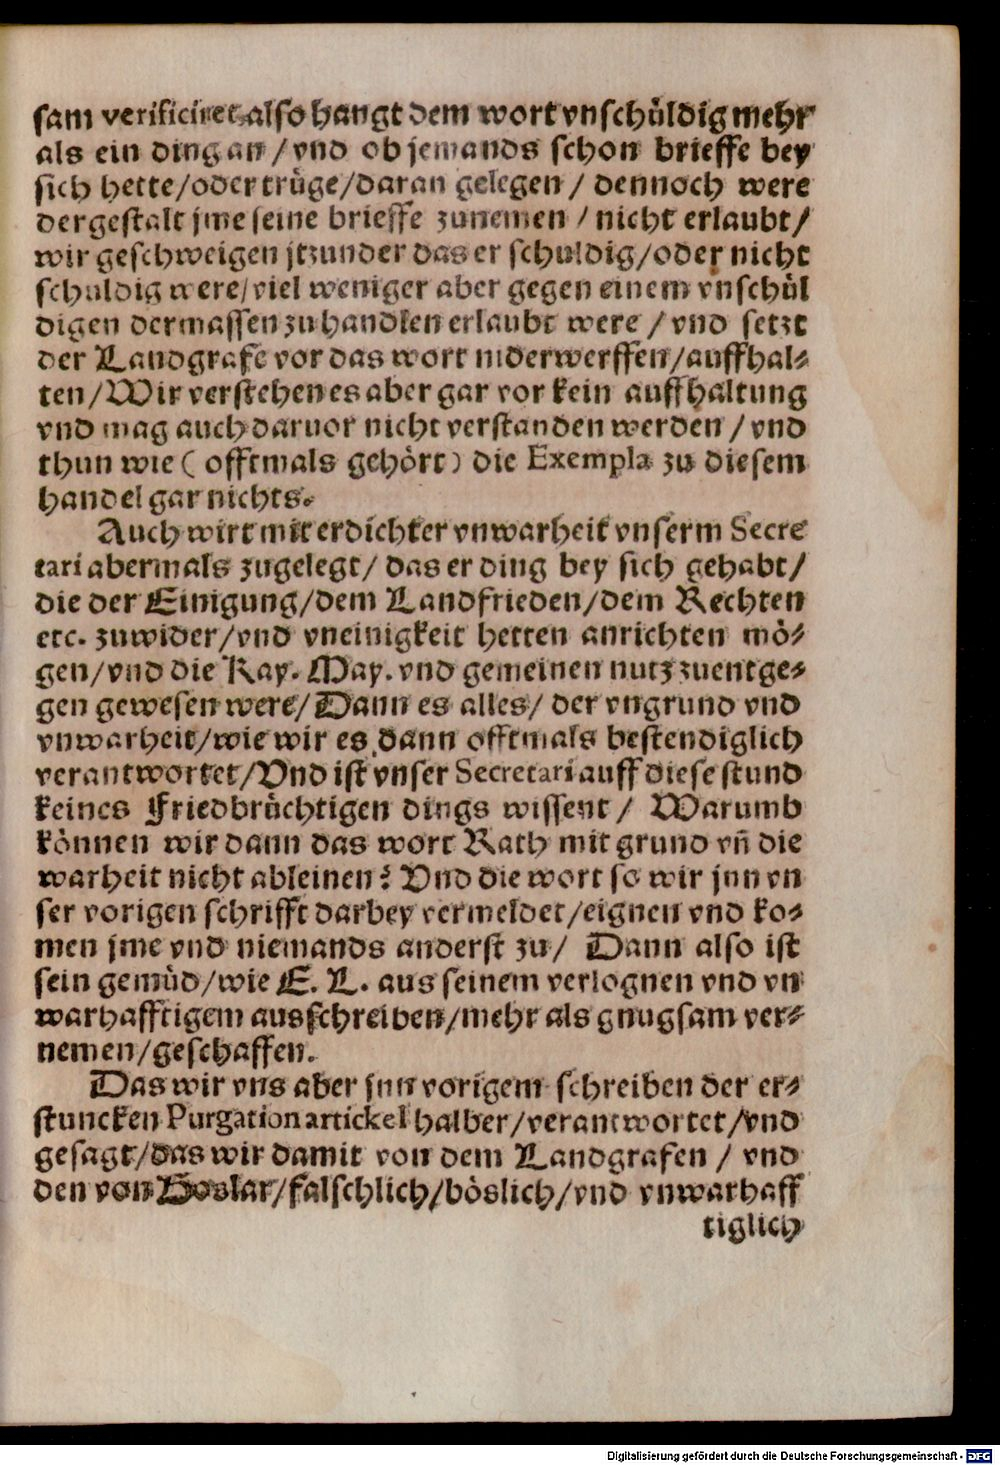 sam verificiret, also hangt dem wort vnschüldig mehr
als ein ding an / vnd ob jemands schon brieffe bey
sich hette/oder trüge/daran gelegen / dennoch were
dergestalt jme seine brieffe zunemen / nicht erlaubt/
wir geschweigen jtzunder das er schuldig/oder nicht
schuldig were/viel weniger aber gegen einem vnschül
digen dermassen zu handlen erlaubt were / vnd setzt
der Landgrafe vor das wort niderwerffen/auffhal-
ten/Wir verstehen es aber gar vor kein auffhaltung
vnd mag auch daruor nicht verstanden werden / vnd
thun wie ( offtmals gehört ) die Exempla zu diesem
handel gar nichts.
Auch wirt mit erdichter vnwarheit vnserm Secre
tari abermals zugelegt/ das er ding bey sich gehabt/
die der Einigung/dem Landfrieden/dem Rechten
etc. zuwider/vnd vneinigkeit hetten anrichten mö-
gen/vnd die Kay. May. vnd gemeinen nutz zuentge-
gen gewesen were/Dann es alles/ der vngrund vnd
vnwarheit/wie wir es dann offtmals bestendiglich
verantwortet/Vnd ist vnser Secretari auff diese stund
keines Friedbrüchtigen dings wissent / Warumb
können wir dann das wort Rath mit grund vn̄ die
warheit nicht ableinen? Vnd die wort so wir jnn vn
ser vorigen schrifft darbey vermeldet/eignen vnd ko-
men jme vnd niemands anderst zu/ Dann also ist
sein gemüd/wie E. L. aus seinem verlognen vnd vn
warhafftigem ausschreiben/mehr als gnugsam ver-
nemen/geschaffen.
Das wir vns aber jnn vorigem schreiben der er-
stuncken Purgation artickel halber/verantwortet/vnd
gesagt/das wir damit von dem Landgrafen / vnd
den von Goslar/falschlich/böslich/vnd vnwarhaff
tiglich
Digitalisierung gefördert durch die Deutsche Forschungsgemeinschaft - DFG